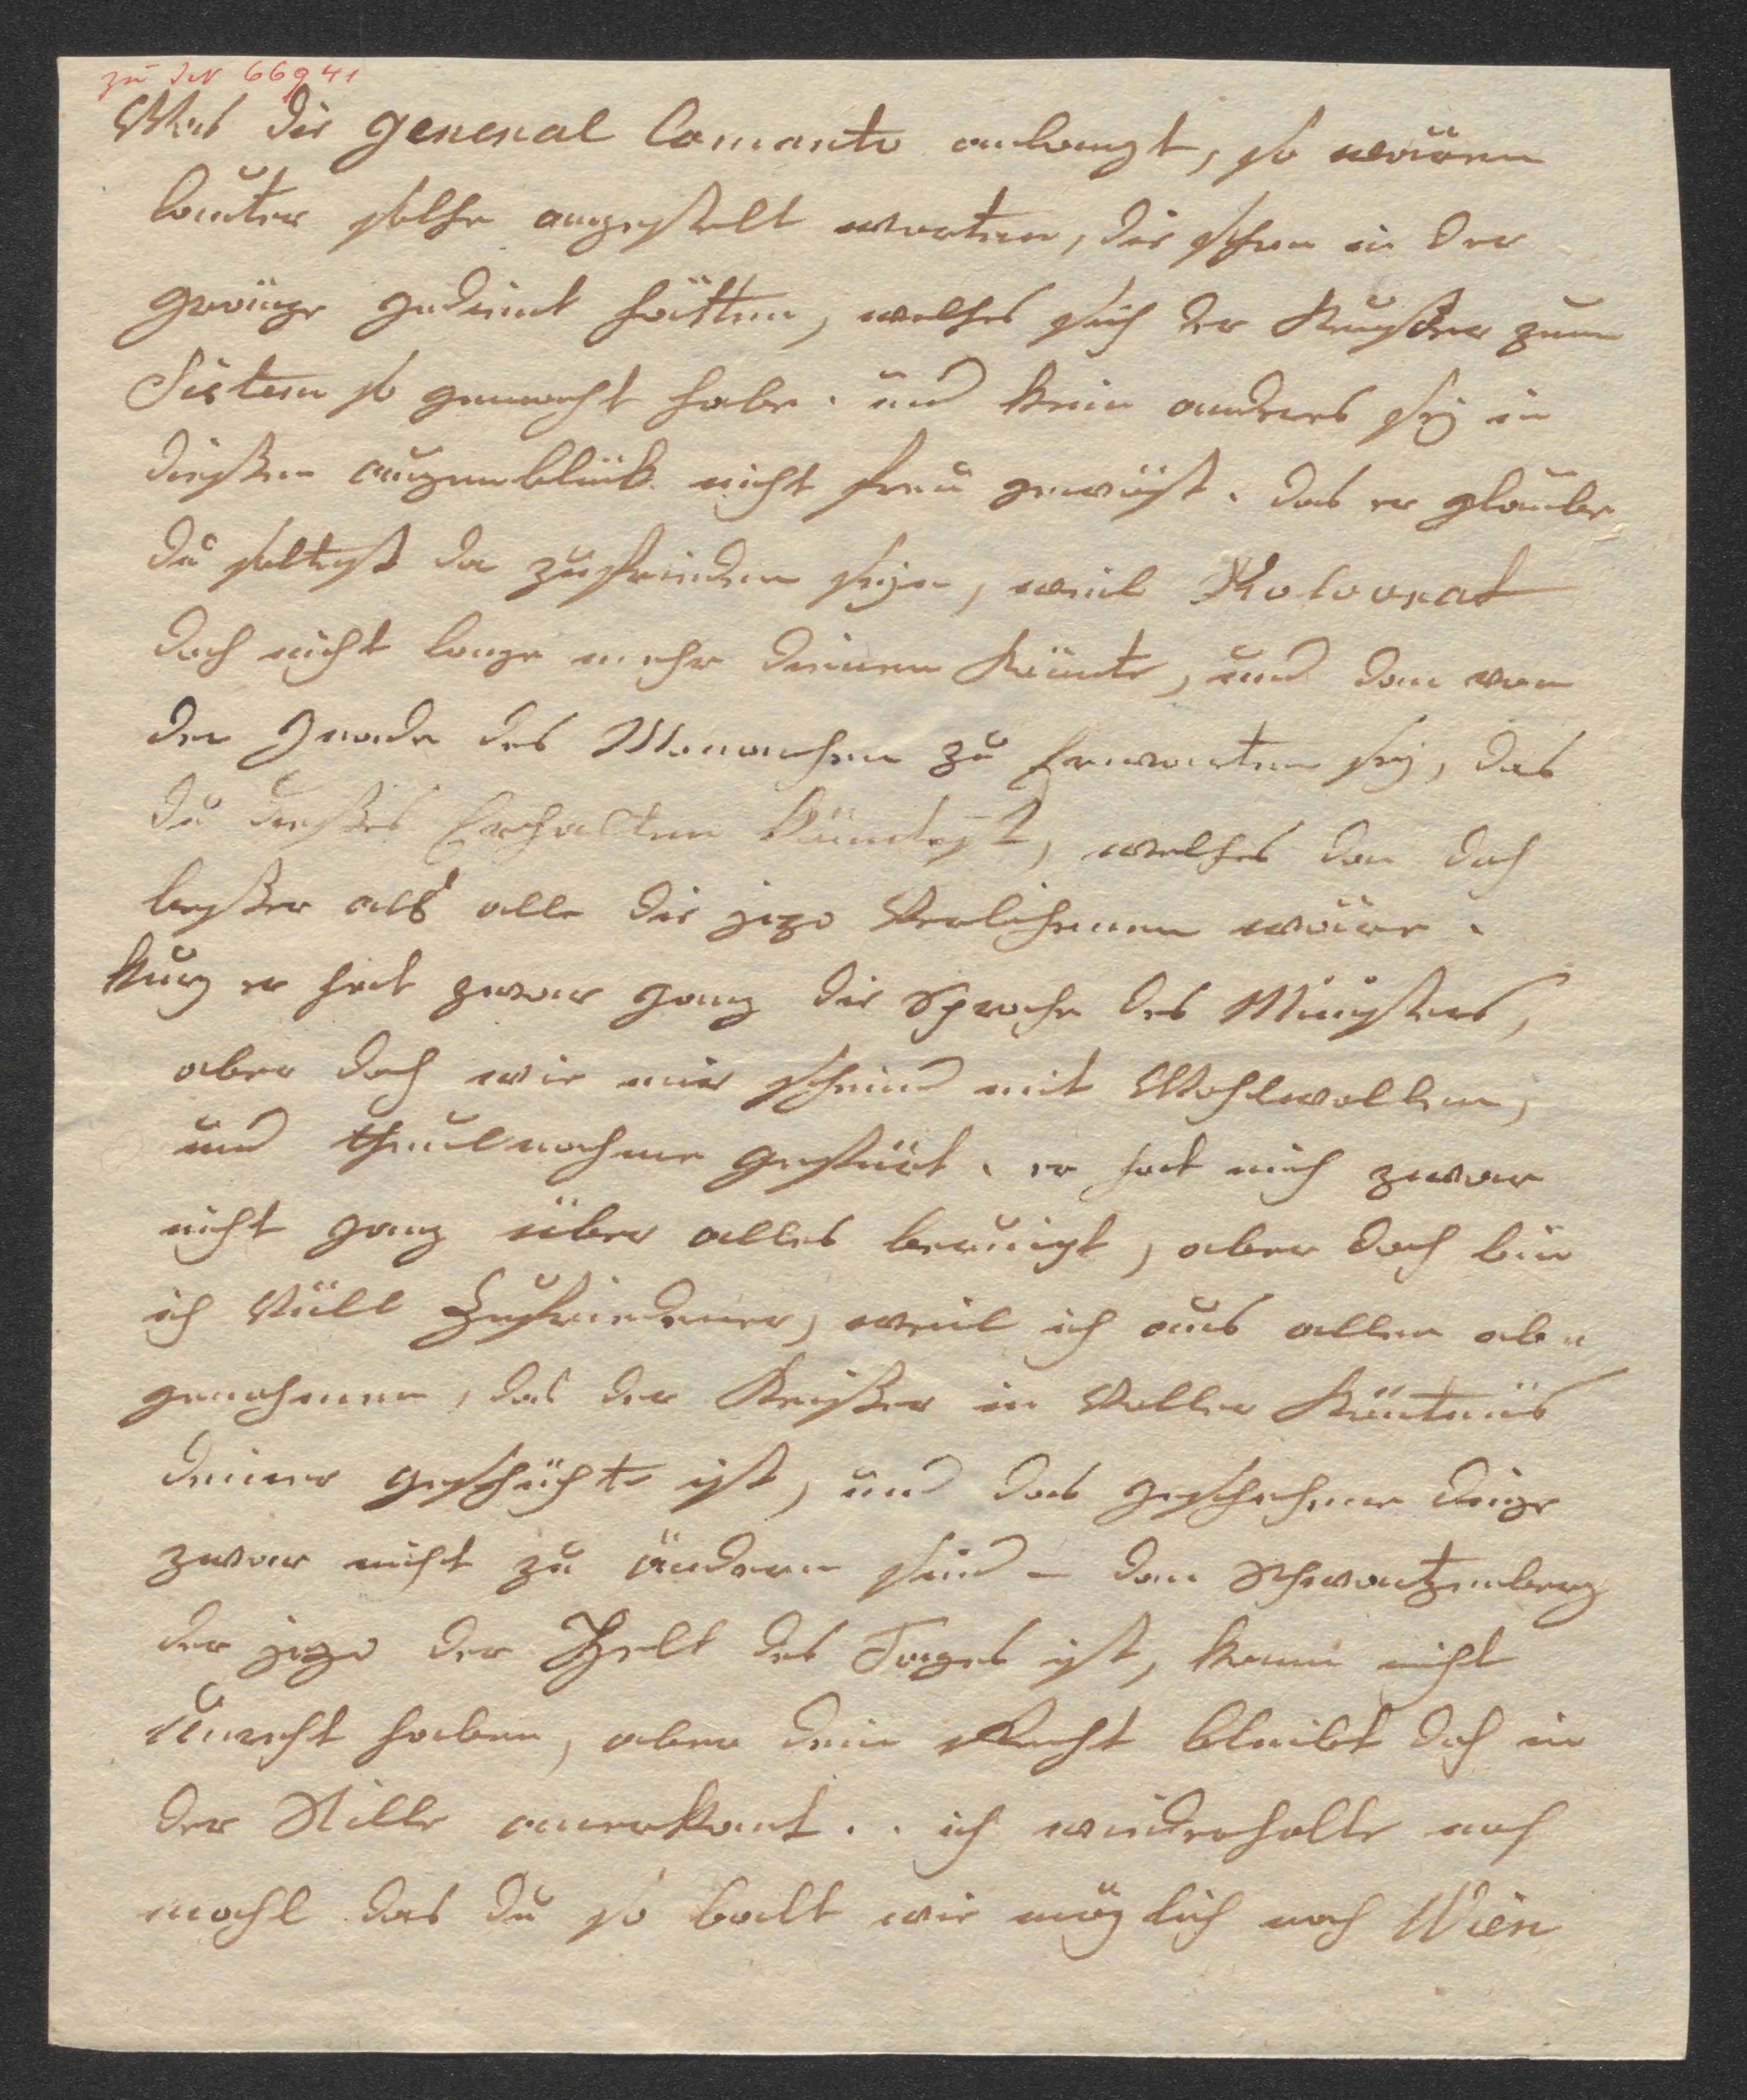 zu IN 66941
Was die general Comando anlangt, so wären
lauter solche angestelt worten, die schon in der
gränze gedient hätten, welches sich der Keyßer zum
Sistem so gemacht habe. und kein anderes sey in
dießen augenblück nicht freu gewäst. das er glaube
du soltest da zufrieden seyn, weil Kolovrat
doch nicht lange mehr dienen könte, und dan von
der gnade des Monarchen zu Erwarten sey, das
du dießes Erhalten köntest, welches dan doch
beßer als alle die jezo Verlihenen wäre.
kurz er hat zwar ganz die Sprache des Ministers,
aber doch wie mir scheind mit Wohlwollen,
und theulnahme gefürt. er hat mich zwar
nicht ganz über alles beruigt, aber doch bin
ich Vüll Zufriedener, weil ich aus allen ab
genohmen, das der Keißer in Voller Käntnüs
deiner geschüchte ist, und das geschehene dinge
zwar nicht zu ändern sind – dan Schwartzenberg
der jezo der Helt des Tages ist, kann nicht
Unrecht haben, aber dein Recht bleibt doch in
der Stille anerkant.. ich wiederholle noch
mahl das du so balt wie möglich nach Wien